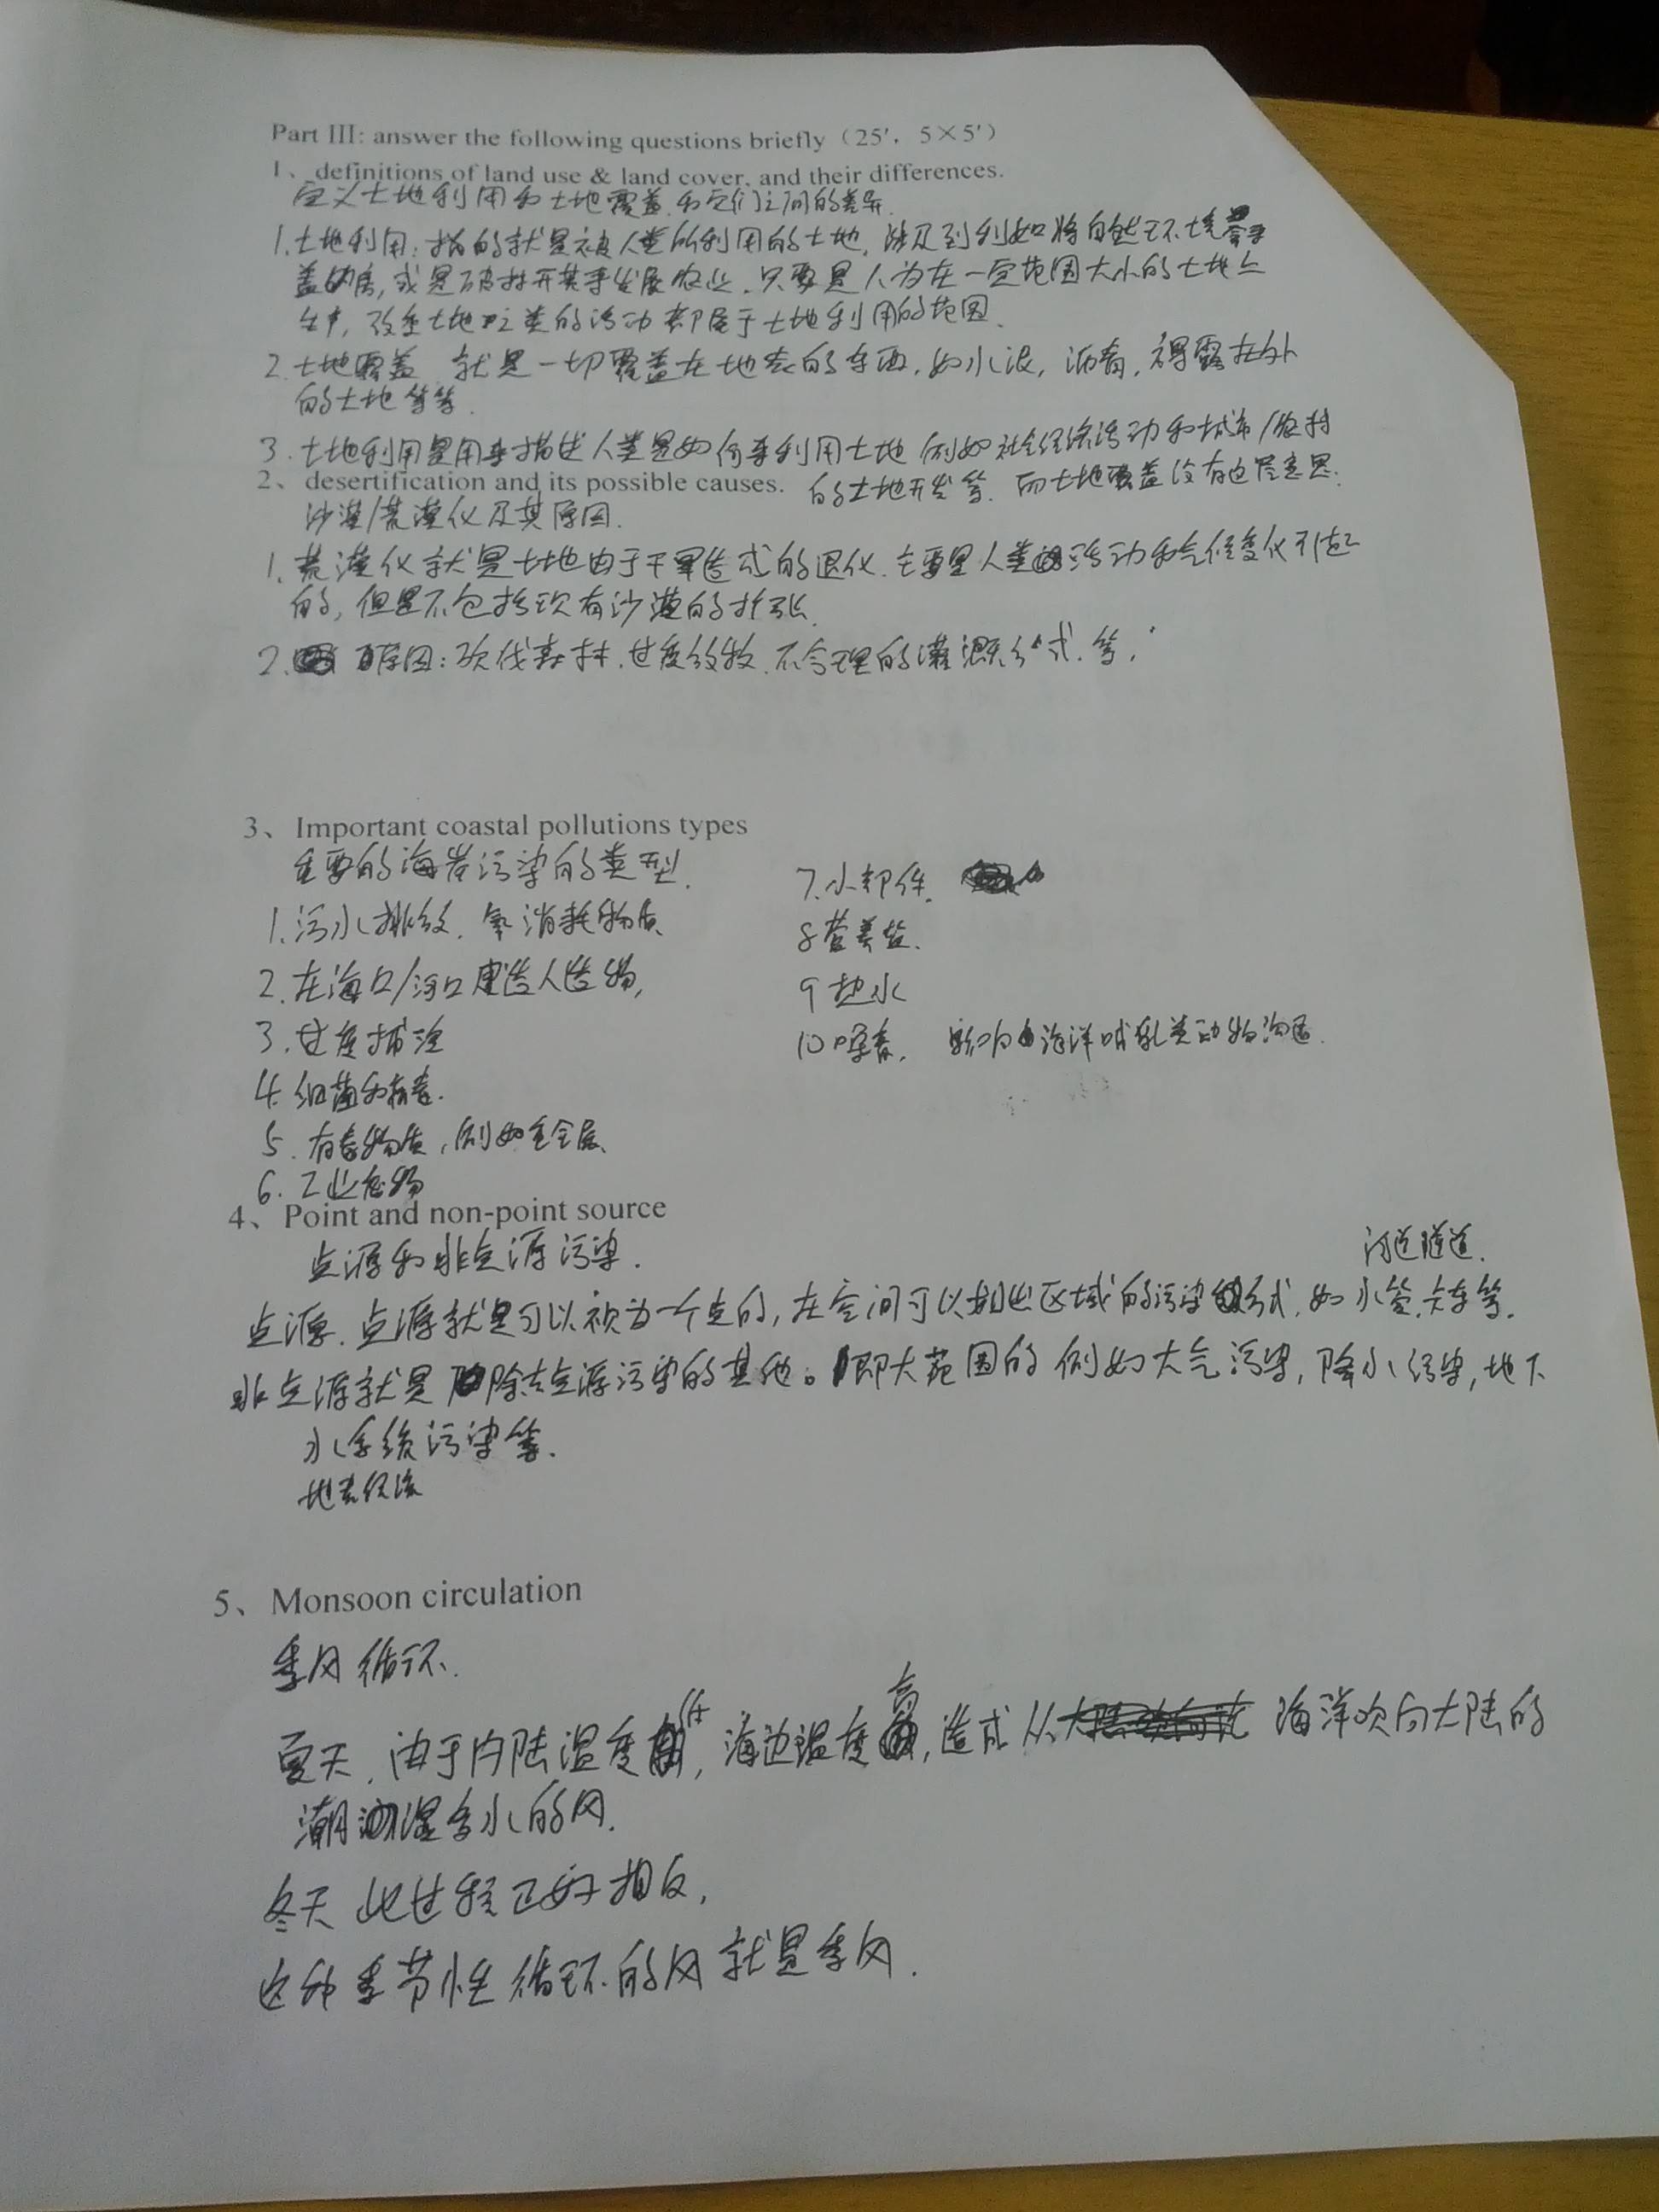 Part III: answer the following questions briefly（25′，5×5′）
1、definitions of land use & land cover, and their differences.
定义土地利用和土地覆盖,和它们之间的差异
1.土地利用:指的就是被人类所利用的土地,涉及到例如将自然环境
盖房,或是被开来发展农业.只要是人为在一定范围大小的土地上
改变土地之类的活动都属于土地利用的范围.
2.土地覆盖 就是一切覆盖在地表的东西,如水泥,沥青,裸露在外
的土地等等.
3.土地利用是用来描述人类是如何来利用土地 例如社会经济活动和城市/农村
的土地开发等.而土地覆盖没有这层意思.
2、desertification and its possible causes.
沙漠/荒漠化及其原因.
1.荒漠化就是土地由于干旱造成的退化.主要是人类活动和气候变化引起
的,但是不包括现有沙漠的扩张.
2.原因:砍伐森林.过度放牧.不合理的灌溉方式.等.
3、Important coastal pollutions types
主要的海岸污染的类型.
1.污水排放.氧消耗物质
2.在海口/河口建造人造物,
3.过度捕渔
4.细菌和病毒.
5.有毒物质,例如重金属
6.工业废物
7.小部件.
8营养盐.
9热水
10噪音. 影响海洋哺乳类动物沟通.
4、Point and non-point source
点源和非点源污染.
河道隧道.
点源.点源就是可以视为一个点的,在空间可以划出区域的污染形式.如水管.卡车等.
非点源就是除去点源污染的其他。即大范围的 例如大气污染,降水污染,地下
水系统污染等.
地表径流
5、Monsoon circulation
季风循环.
夏天,由于内陆温度低,海边温度高,造成从海洋吹向大陆的
潮湿含水的风.
冬天 此过程正好相反,
这种季节性循环的风就是季风.